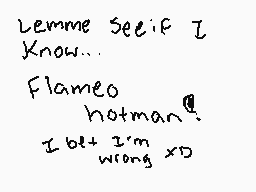 Lemme see if I
Know...
Flameo
hotman?
I bet I'm
wrong XD